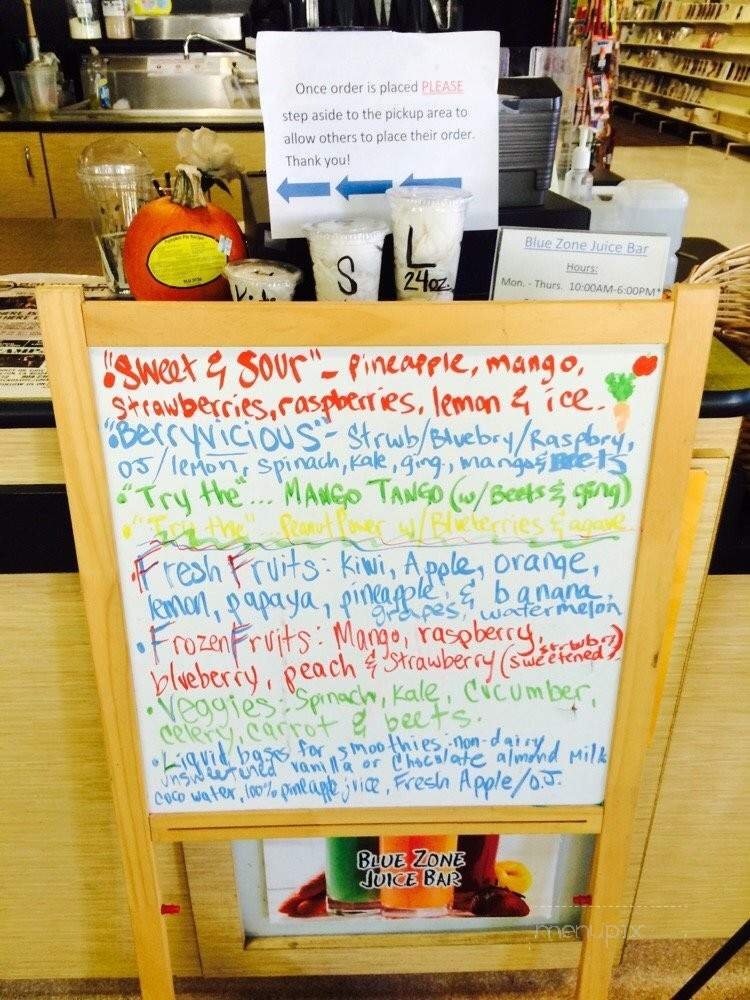 Once order is placed PLEASE
step aside to the pickup area to
allow others to place their order.
Thank you!
Kids
S
L
24oz.
Blue Zone Juice Bar
Hours:
Mon. - Thurs. 10:00AM-6:00PM*
"Sweet & Sour" - pineapple, mango,
strawberries, raspberries, lemon & ice.
"BERRYVICIOUS" - Strwb/Bluebry/Raspbry,
OJ/lemon, spinach, kale, ging., mango & Beets
"Try the"... MANGO TANGO (w/ Beets & ging)
"Try the" Peanut Power w/ Blueberries & agave
Fresh Fruits: kiwi, Apple, orange,
lemon, papaya, pineapple, & banana,
grapes, watermelon
Frozen Fruits: Mango, raspberry,
blueberry, peach & strawberry (sweetened strwbry)
Veggies: Spinach, Kale, Cucumber,
celery, carrot & beets.
Liquid bases for smoothies-non-dairy
unsweetened vanilla or Chocolate almond Milk
coco water, 100% pineapple juice, Fresh Apple/O.J.
BLUE ZONE
JUICE BAR
menupix